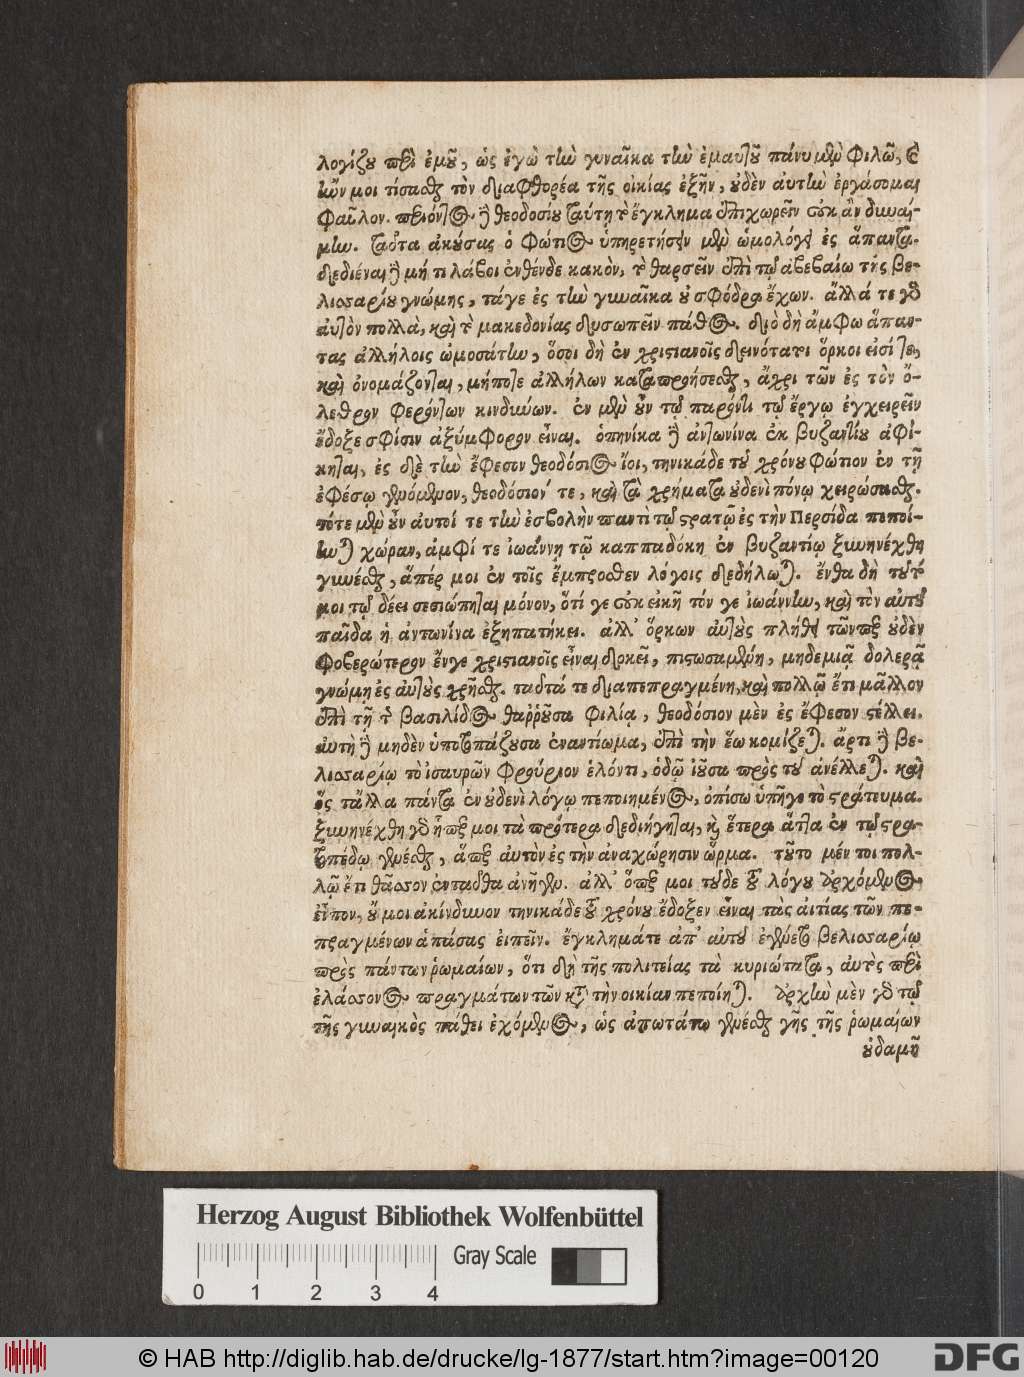 λογίζου περὶ ἐμοῦ, ὡς ἐγὼ τὴν γυναῖκα τὴν ἐμαυτοῦ πάνυ μὲν φιλῶ, καὶ
ἤν μοι τίσασθαι τὸν διαφθορέα τῆς οἰκίας ἐξῇν, οὐδὲν αὐτὴν ἐργάσομαι
φαῦλον. περιόντος δὲ θεοδοσίου ταύτῃ τὸ ἔγκλημα ἐπιχωρεῖν οὐκ ἂν δυναί-
μην. ταῦτα ἀκούσας ὁ Φώτιος ὑπηρετήσειν μὲν ὡμολόγει ἐς ἅπαντα.
δεδιέναι δὲ μή τι λάβοι ἐνθένδε κακὸν, τὸ θαρσεῖν ἐπὶ τῷ ἀβεβαίῳ τῆς βε-
λισσαρίου γνώμης, τάγε ἐς τὴν γυναῖκα οὐ σφόδρα ἔχων. ἄλλά τε γὰρ
αὐτὸν πολλὰ, καὶ τὸ μακεδονίας δυσωπεῖν πάθος. διὸ δὴ ἄμφω ἅπαν-
τας ἀλλήλοις ὠμοσάτην, ὅσοι δὴ ἐν χριστιανοῖς δεινότατοι ὅρκοι εἰσί τε,
καὶ ὀνομάζονται, μήποτε ἀλλήλων καταπροήσεσθαι, ἄχρι τῶν ἐς τὸν ὄ-
λεθρον φερόντων κινδύνων. ἐν μὲν οὖν τῷ παρόντι τῷ ἔργῳ ἐγχειρεῖν
ἔδοξε σφίσιν ἀξύμφορον εἶναι. ὁπηνίκα δὲ ἀντωνίνα ἐκ βυζαντίου ἀφί-
κηται, ἐς δὲ τὴν ἔφεσον θεοδόσιος ἴοι, τηνικάδε τοῦ χρόνου Φώτιον ἐν τῇ
ἐφέσῳ γενόμενον, θεοδόσιόν τε, καὶ τὰ χρήματα οὐδενὶ πόνῳ χειρώσασθαι.
τότε μὲν οὖν αὐτοί τε τὴν ἐσβολὴν παντὶ τῷ στρατῷ ἐς τὴν Περσίδα πεποί-
ηνται χώραν, ἀμφί τε ἰωάννῃ τῷ καππαδόκῃ ἐν βυζαντίῳ ξυνηνέχθη
γενέσθαι, ἅπέρ μοι ἐν τοῖς ἔμπροσθεν λόγοις δεδήλωται. ἔνθα δὴ τοῦτό
μοι τῷ δέει σεσιώπηται μόνον, ὅτί γε οὐκ εἰκῆ τόν γε ἰωάννην, καὶ τὴν αὐτοῦ
παῖδα ἡ ἀντωνίνα ἐξηπατήκει. ἀλλ' ὅρκων αὐτοὺς πλήθει τῶνπερ οὐδὲν
φοβερώτερον ἔνγε χριστιανοῖς εἶναι δοκεῖ, πιστωσαμένη, μηδεμιᾷ δολερᾷ
γνώμῃ ἐς αὐτοὺς χρῆσθαι. ταῦτά τε διαπεπραγμένη, καὶ πολλῷ ἔτι μᾶλλον
ἐπὶ τῇ τῆς βασιλίδος θαῤῥοῦσα φιλίᾳ, θεοδόσιον μὲν ἐς ἔφεσον στέλλει.
αὐτὴ δὲ μηδὲν ὑποτοπάζουσα ἐναντίωμα, ἐπὶ τὴν ἕω κομίζεται. ἄρτι δὲ βε-
λισσαρίῳ τὸ ἰσαυρῶν φρούριον ἑλόντι, ὁδῷ ἰοῦσα πρός του ἀνέλλεται. καὶ
ὃς τἄλλα πάντα ἐν οὐδενὶ λόγῳ πεποιημένος, ὀπίσω ὑπῆγε τὸ στράτευμα.
ξυνηνέχθη γὰρ ἥπερ μοι τὰ πρότερα δεδιήγηται, καὶ ἕτερα ἅττα ἐν τῷ στρα-
τοπέδῳ γενέσθαι, ἅπερ αὐτὸν ἐς τὴν ἀναχώρησιν ὥρμα. τοῦτο μέν τοι πολ-
λῷ ἔτι θᾶσσον ἐνταῦθα ἀνῆγεν. ἀλλ' ὅπερ μοι τοῦδε τοῦ λόγου ἀρχόμενος
εἶπον, οὔ μοι ἀκίνδυνον τηνικάδε τοῦ χρόνου ἔδοξεν εἶναι τὰς αἰτίας τῶν πε-
πραγμένων ἁπάσας εἰπεῖν. ἔγκλημάτε ἀπ' αὐτοῦ ἐγένετο βελισσαρίῳ
πρὸς πάντων ῥωμαίων, ὅτι δὴ τῆς πολιτείας τὰ κυριώτατα, αὐτὸς περὶ
ἐλάσσονος πραγμάτων τῶν κατὰ τὴν οἰκίαν πεποίηται. ἀρχὴν μὲν γὰρ τῷ
τῆς γυναικὸς πάθει ἐχόμενος, ὡς ἀπωτάτω γενέσθαι γῆς τῆς ῥωμαίων
οὐδαμῆ
Herzog August Bibliothek Wolfenbüttel
Gray Scale
0 1 2 3 4
© HAB http://diglib.hab.de/drucke/lg-1877/start.htm?image=00120
DFG